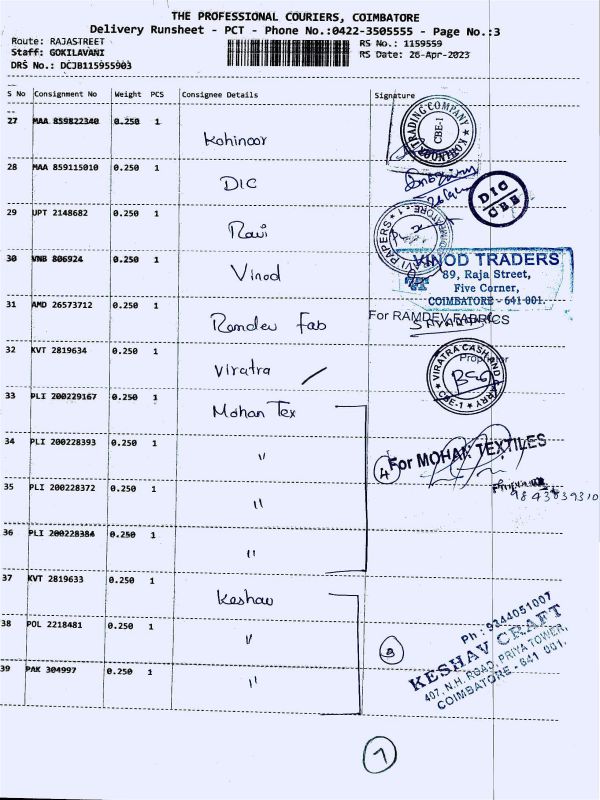 THE PROFESSIONAL COURIERS, COIMBATORE
Delivery Runsheet - PCT - Phone No.:0422-3505555 - Page No.:3
Route: RAJASTREET
Staff: GOKILAVANI
DRS No.: DCJB115955903
RS No.: 1159559
RS Date: 26-Apr-2023
S No Consignment No Weight PCS Consignee Details Signature
27 MAA 859822340 0.250 1 Kohinoor
KOHINOOR TRADING COMPANY CBE-1
28 MAA 859115010 0.250 1 DIC
DIC CBE
29 UPT 2148682 0.250 1 Ravi
RAVI PAPERS COIMBATORE - 1
30 VNB 806924 0.250 1 Vinod
VINOD TRADERS
89, Raja Street,
Five Corner,
COIMBATORE - 641 001.
31 AMD 26573712 0.250 1 Ramdev Fab
For RAMDEV FABRICS
Proprietor
32 KVT 2819634 0.250 1 Viratra
VIRATRA CASH AND CARRY CBE-1
33 PLI 200229167 0.250 1 Mohan Tex
34 PLI 200228393 0.250 1 "
4
For MOHAN TEXTILES
35 PLI 200228372 0.250 1 "
36 PLI 200228384 0.250 1 "
37 KVT 2819633 0.250 1 Keshav
38 POL 2218481 0.250 1 "
3
Ph : 9344051007
KESHAV CRAFT
407, N.H. ROAD, PRIYA TOWER,
COIMBATORE - 641 001.
39 PAK 304997 0.250 1 "
7